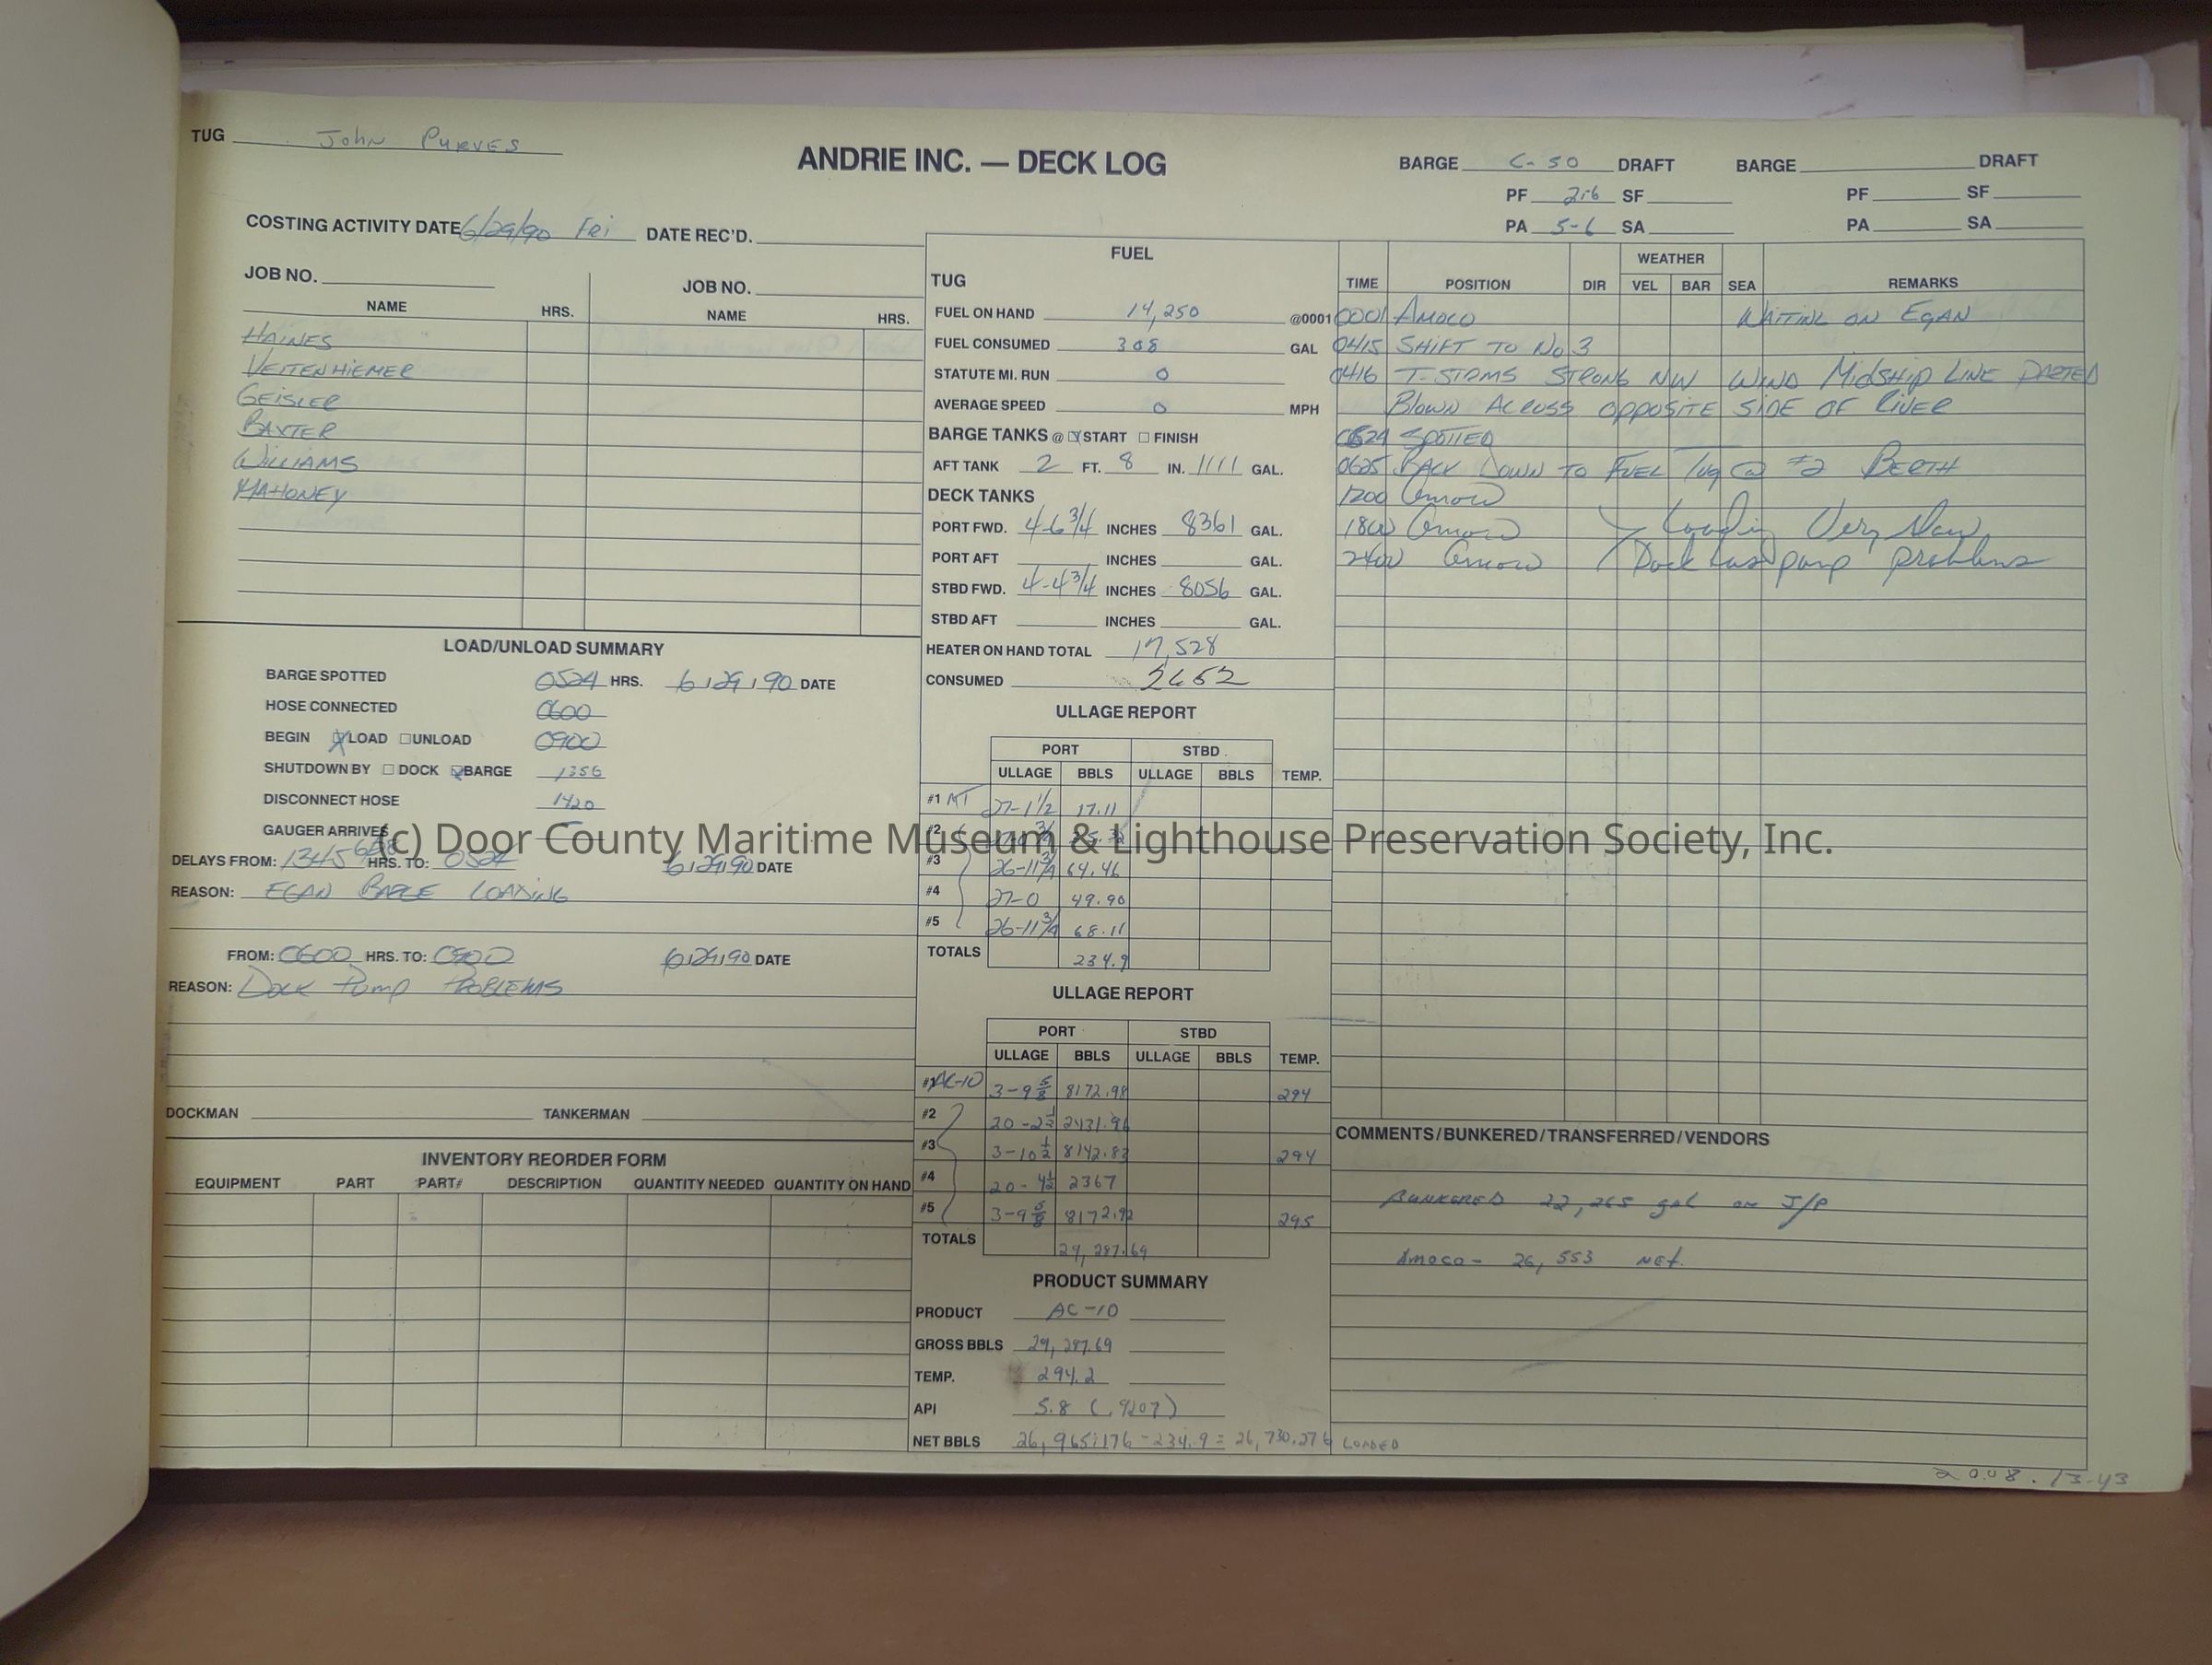 TUG John Purves
ANDRIE INC. — DECK LOG
BARGE C-50 DRAFT BARGE DRAFT
PF 2-6 SF PF SF
PA 5-6 SA PA SA
COSTING ACTIVITY DATE 6/29/90 Fri DATE REC'D.
JOB NO. JOB NO.
NAME HRS. NAME HRS.
HAINES
VEITENHIEMER
GEISLER
BAXTER
WILLIAMS
MAHONEY
LOAD/UNLOAD SUMMARY
BARGE SPOTTED 0524 HRS. 6/29/90 DATE
HOSE CONNECTED 0600
BEGIN ☒LOAD ☐UNLOAD 0900
SHUTDOWN BY ☐DOCK ☑BARGE 1356
DISCONNECT HOSE 1420
GAUGER ARRIVES
DELAYS FROM: 1345 HRS. TO: 0524 6/29/90 DATE
REASON: EGAN BARGE LOADING
FROM: 0600 HRS. TO: 0900 6/29/90 DATE
REASON: Dock Pump PROBLEMS
DOCKMAN TANKERMAN
INVENTORY REORDER FORM
EQUIPMENT PART PART# DESCRIPTION QUANTITY NEEDED QUANTITY ON HAND
FUEL
TUG
FUEL ON HAND 14,250 @0001
FUEL CONSUMED 308 GAL
STATUTE MI. RUN 0
AVERAGE SPEED 0 MPH
BARGE TANKS @ ☑START ☐ FINISH
AFT TANK 2 FT. 8 IN. 1111 GAL.
DECK TANKS
PORT FWD. 4-6 3/4 INCHES 8361 GAL.
PORT AFT INCHES GAL.
STBD FWD. 4-4 3/4 INCHES 8056 GAL.
STBD AFT INCHES GAL.
HEATER ON HAND TOTAL 17,528
CONSUMED 2652
ULLAGE REPORT
PORT STBD.
ULLAGE BBLS ULLAGE BBLS TEMP.
#1 MT 27-1 1/2 17.11
#2
#3 26-11 3/4 64.46
#4 27-0 49.90
#5 26-11 3/4 68.11
TOTALS 234.9
ULLAGE REPORT
PORT STBD
ULLAGE BBLS ULLAGE BBLS TEMP.
#1 AC-10 3-9 5/8 8172.98 294
#2 20-2 1/2 2431.96
#3 3-10 1/2 8142.83 294
#4 20-4 1/2 2367
#5 3-9 5/8 8172.92 295
TOTALS 29,287.69
PRODUCT SUMMARY
PRODUCT AC-10
GROSS BBLS 29,287.69
TEMP. 294.2
API 5.8 (.9207)
NET BBLS 26,965.176 - 234.9 = 26,730.276 LOADED
WEATHER
TIME POSITION DIR VEL BAR SEA REMARKS
0001 AMOCO WAITING ON EGAN
0415 SHIFT TO No 3
0416 T-STRMS STRONG NW WIND MIDSHIP LINE PARTED
Blown ACROSS OPPOSITE SIDE OF RIVER
0524 SPOTTED
0625 BACK DOWN TO FUEL Tug @ #2 BERTH
1200 Amoco
1800 Amoco Loading Very Slow
2400 Amoco Dock has pump problems
COMMENTS/BUNKERED/TRANSFERRED/VENDORS
BUNKERED 22,265 gal on J/P
Amoco - 26,553 NET.
2008.13.43
(c) Door County Maritime Museum & Lighthouse Preservation Society, Inc.